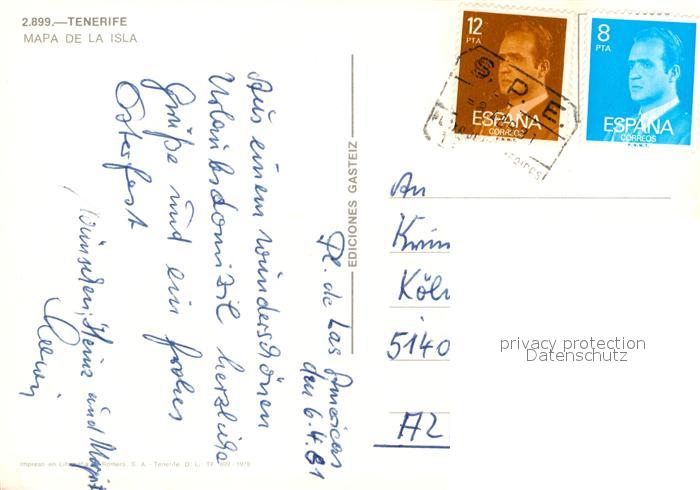 2.899.—TENERIFE
MAPA DE LA ISLA
12
PTA
ESPAÑA
CORREOS
F.N.M.T.
8
PTA
ESPAÑA
CORREOS
F.N.M.T.
S. P. E.
EDICIONES GASTEIZ
Pl. de Las Americas
den 6.4.81
Aus einem wunderschönen
Urlaubsdomizil herzliche
Grüße und ein frohes
Osterfest
wünschen, Heinz und
An
Köln
5140
privacy protection
Datenschutz
Romero, S. A. - Tenerife. D. L. TF. 899 - 1978